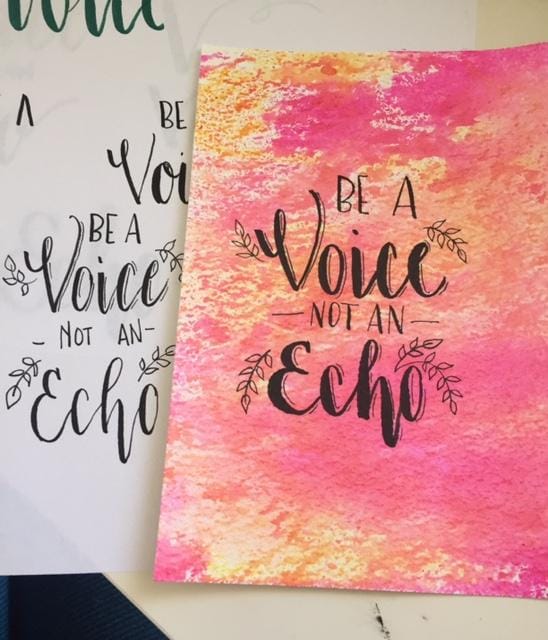 A
BE
BE A
Voice
- NOT AN-
Echo
BE A
Voice
—NOT AN—
Echo